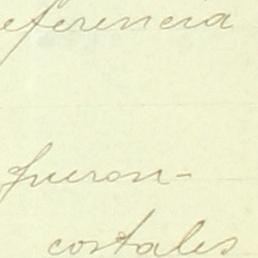 eferencia
fueron-
costales